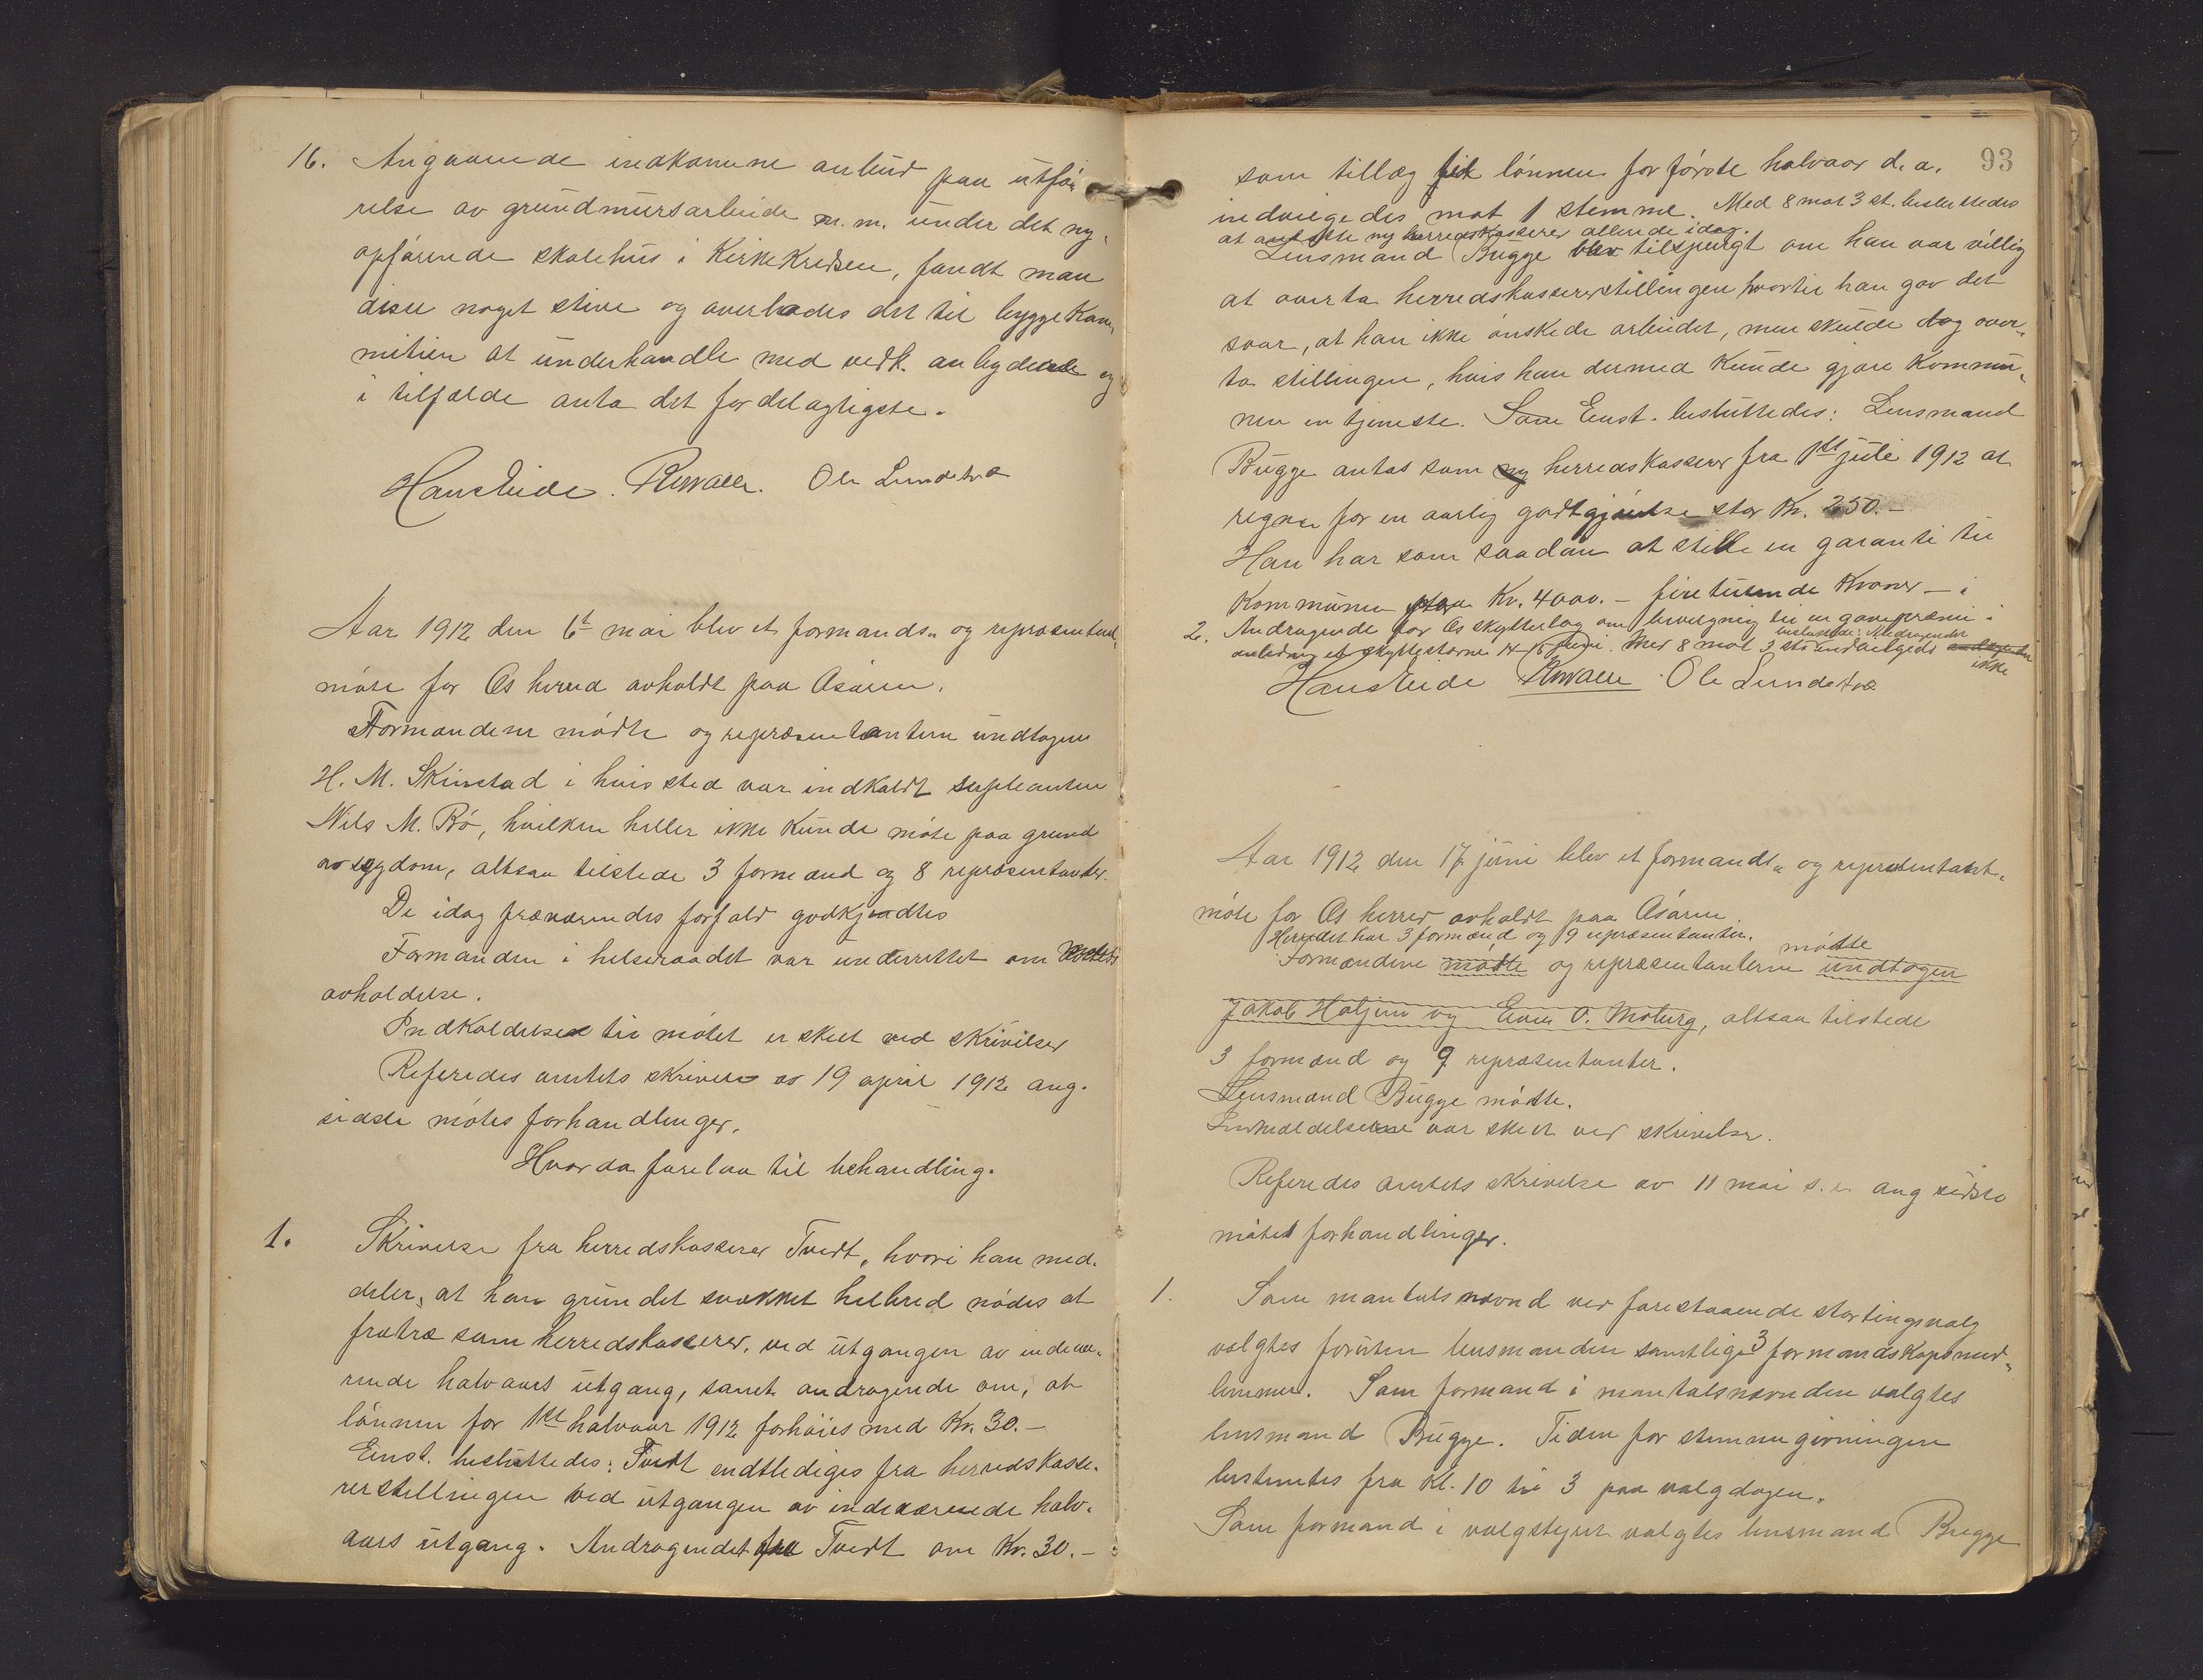 16. Angaaende indkomne anbud paa utfø-
relse av grundmursarbeide m.m. under det ny-
opførende skolehus i Kirkekredsen, fandt man
disse noget stive og overlodes det til byggekom-
mitien at underhandle med vedk. anbydende og
i tilfælde anta det fordelagtigste.
Ole Lundetræ
Aar 1912 den 6t mai blev et formands- og repræsentant
møte for Os herred avholdt paa Osøren.
Formændene mødte og repræsentanterne undtagen
H. M. Skinstad i hvis sted var indkaldt supleanten
Nils M. Rø, hvilken heller ikke kunde møte paa grund
av sygdom, altsaa tilstede 3 formænd og 8 repræsentanter.
De idag fraværendes forfald godkjendtes
Formanden i helseraadet var underrettet om møtets
avholdelse.
Indkaldelse til møtet er skeet ved skrivelser
Referedes amtets skrivelse av 19 april 1912 ang.
sidste møtes forhandlinger.
Hvorda forelaa til behandling.
1. Skrivelse fra herredskasserer Tvedt, hvori han med-
deler, at han grundet svækket helbred nødes at
fratræ som herredskasserer, ved utgangen av indevæ-
rende halvaars utgang, samt andragende om, at
lønnen for 1ste halvaar 1912 forhøies med Kr. 30.-
Enst. besluttedes: Tvedt entlediges fra herredskasse-
rerstillingen ved utgangen av indeværende halv-
aars utgang. Andragendet fra Tvedt om Kr. 30.-
93
som tillæg til lønnen for første halvaar d.a.
indvilgedes mot 1 stemme. Med 8 mot 3 st. besluttedes
at ansætte ny herredskasserer allerede idag.
Lensmand Bugge blev tilspurgt om han var villig
at overta herredskassererstillingen hvortil han gav det
svar, at han ikke ønskede arbeidet, men skulde dog over-
ta stillingen, hvis han dermed kunde gjøre kommu-
nen en tjeneste. Som Enst. besluttedes: Lensmand
Bugge antas som ny herredskasserer fra 1ste juli 1912 at
regne for en aarlig godtgjørelse stor Kr. 250.-
Han har som saadan at stille en garanti til
Kommunen stor Kr. 4000.- firetusende Kroner - i
2. Andragende for Os skytterlag om bevilgning til en gavepræmie i
anledning et skytterstævne 14-15 juni. Med 8 mot 3 st. besluttedes: Andragendet
indvilgedes ikke
Ole Lundetræ
Aar 1912 den 17 juni blev et formands- og repræsentant-
møte for Os herred avholdt paa Osøren.
Herredet har 3 formænd og 9 repræsentanter.
Formændene mødte og repræsentanterne mødte undtagen
Jakob Haljem og Einer O. Moberg, altsaa tilstede
3 formænd og 9 repræsentanter.
Lensmand Bugge mødte.
Innkaldelsene var skeet ved skrivelse.
Referedes amtets skrivelse av 11 mai s. ang sidste
møtes forhandlinger.
1. Som mantalsnævnd ved forestaaende stortingsvalg
valgtes foruten lensmanden samtlige 3 formandskapsmed-
lemmer. Som formand i mantalsnævnden valgtes
lensmand Bugge. Tiden for stemmegivningen
bestemtes fra Kl. 10 til 3 paa valgdagen.
Som formand i valgstyret valgtes lensmand Bugge